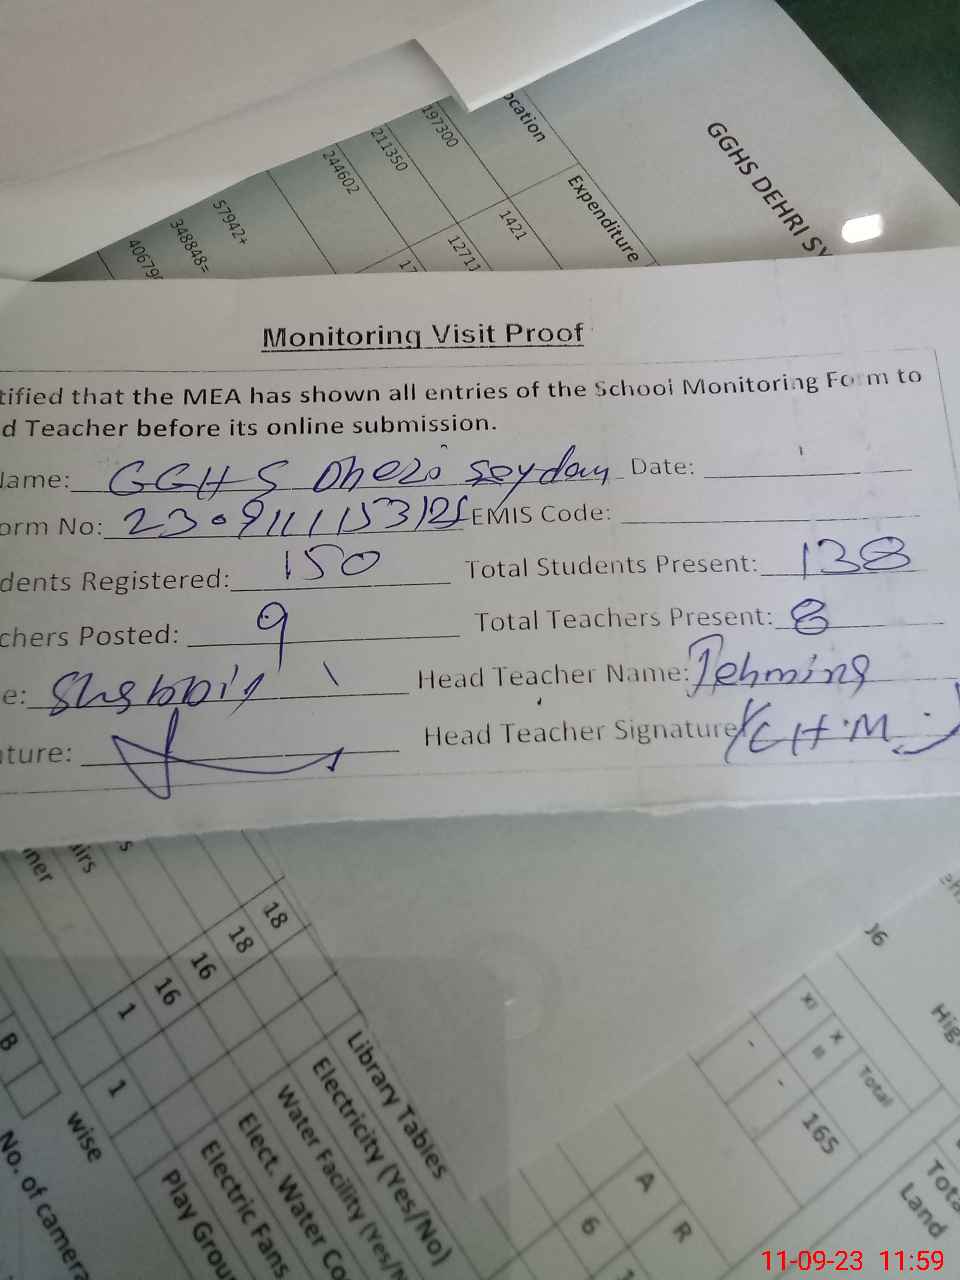 ocation
197300
211350
244602
57942+
348848=
40679
Expenditure
1421
12711
17
GGHS DEHRI SY
Monitoring Visit Proof
tified that the MEA has shown all entries of the School Monitoring Form to
d Teacher before its online submission.
Name: GGHS Dheri Seydan Date:
orm No: EMIS Code:
dents Registered: 150 Total Students Present: 138
chers Posted: 9 Total Teachers Present: 8
e: Shabbir Head Teacher Name: Tehmina
ature: Head Teacher Signature (G H M)
ner
airs
s
18
18
16
16
1
1
Library Tables
Electricity (Yes/No)
Water Facility (Yes/N
Elect. Water Co
Electric Fans
Play Groun
8
wise
No. of camera
06
High
XI
X
=
Total
-
-
165
A
R
6
1
Tota
Land
11-09-23 11:59